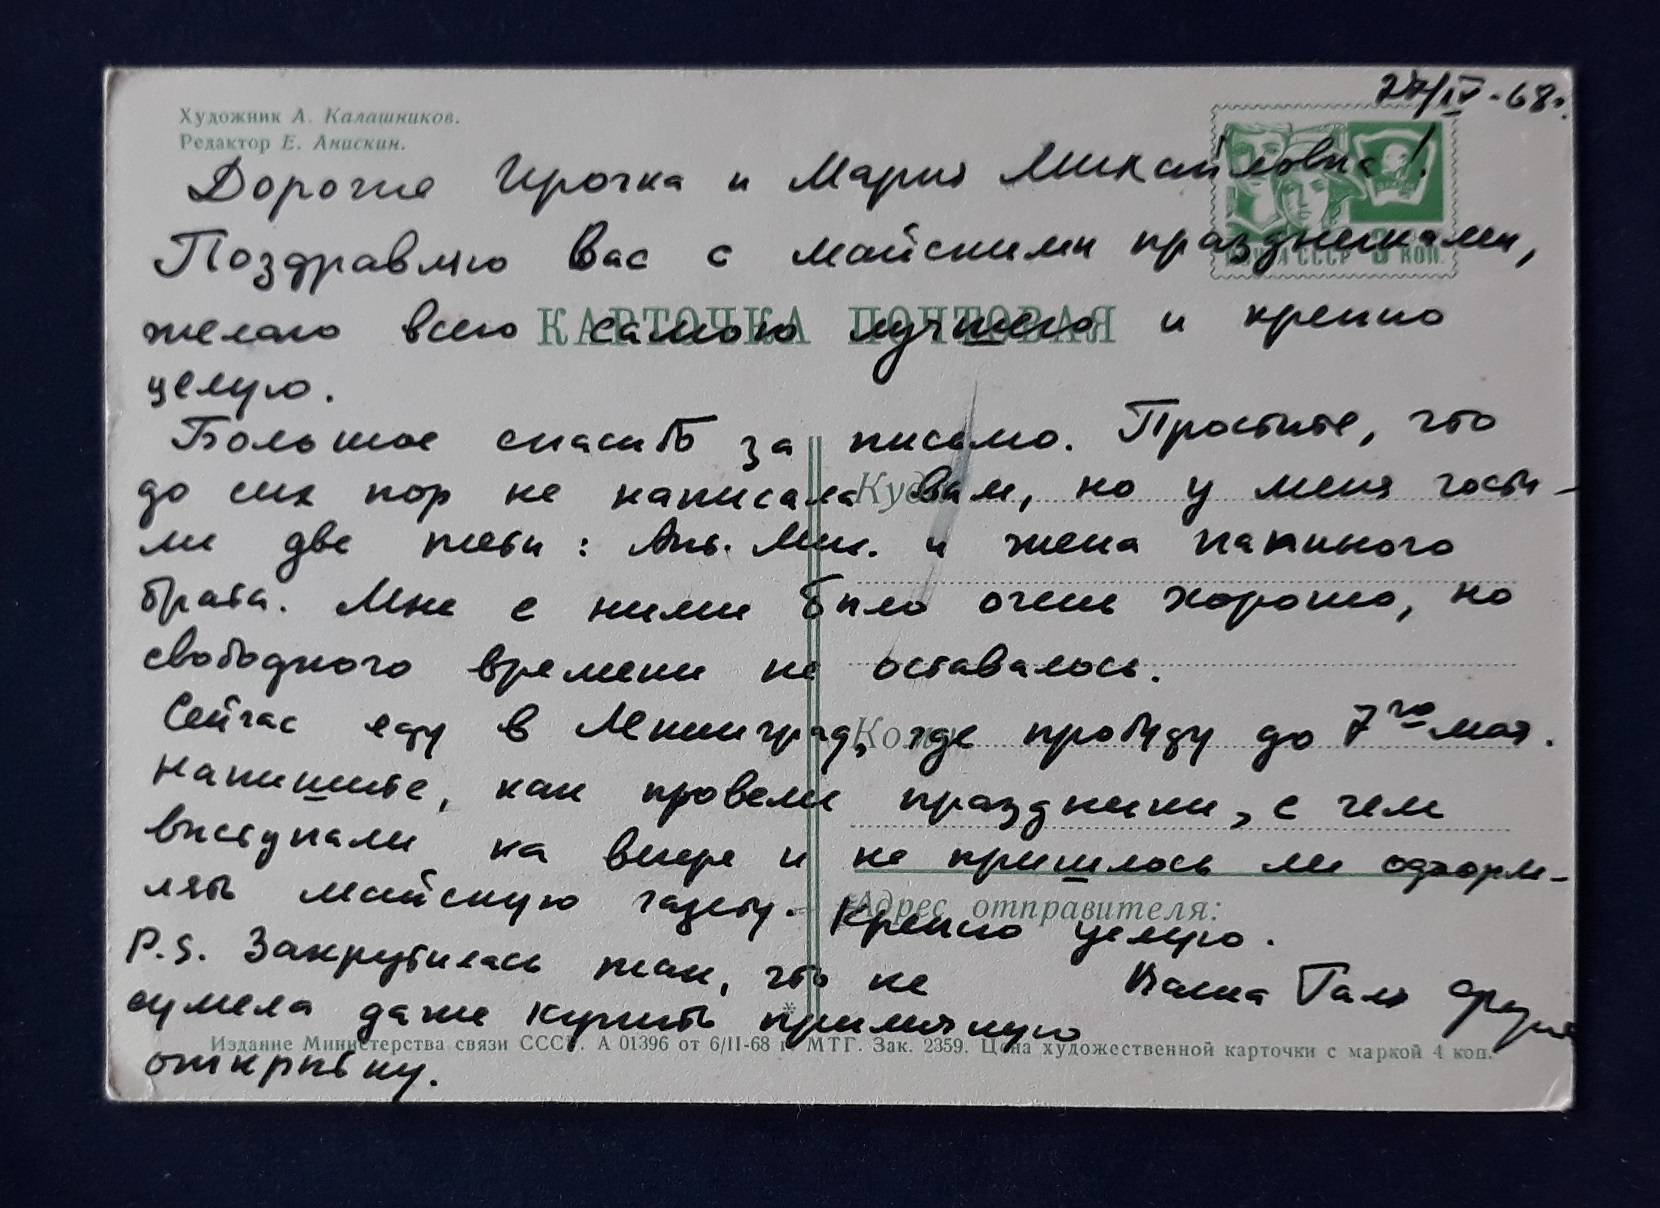 27/IV-68г.
Художник А. Калашников.
Редактор Е. Анискин.
Дорогие Ирочка и Мария Михайловна!
ПОЧТА СССР 3 КОП.
Поздравляю Вас с майскими праздниками,
КАРТОЧКА ПОЧТОВАЯ
желаю всего самого лучшего и крепко
целую.
Большое спасибо за письмо. Простите, что
Куда
до сих пор не написала Вам, но у меня гости-
ли две тети: Ан. Мих. и жена папиного
брата. Мне с ними было очень хорошо, но
свободного времени не оставалось.
Сейчас еду в Ленинград, где пробуду до 7го мая.
Кому
Напишите, как провели праздники, с чем
выступали на вечере и не пришлось ли оформ-
лять майскую газету. Крепко целую.
Адрес отправителя:
P.S. Закрутилась так, что не
Ваша Галя
сумела даже купить приличную
Издание Министерства связи СССР. А 01396 от 6/II-68 г. МТГ. Зак. 2359. Цена художественной карточки с маркой 4 коп.
открытку.